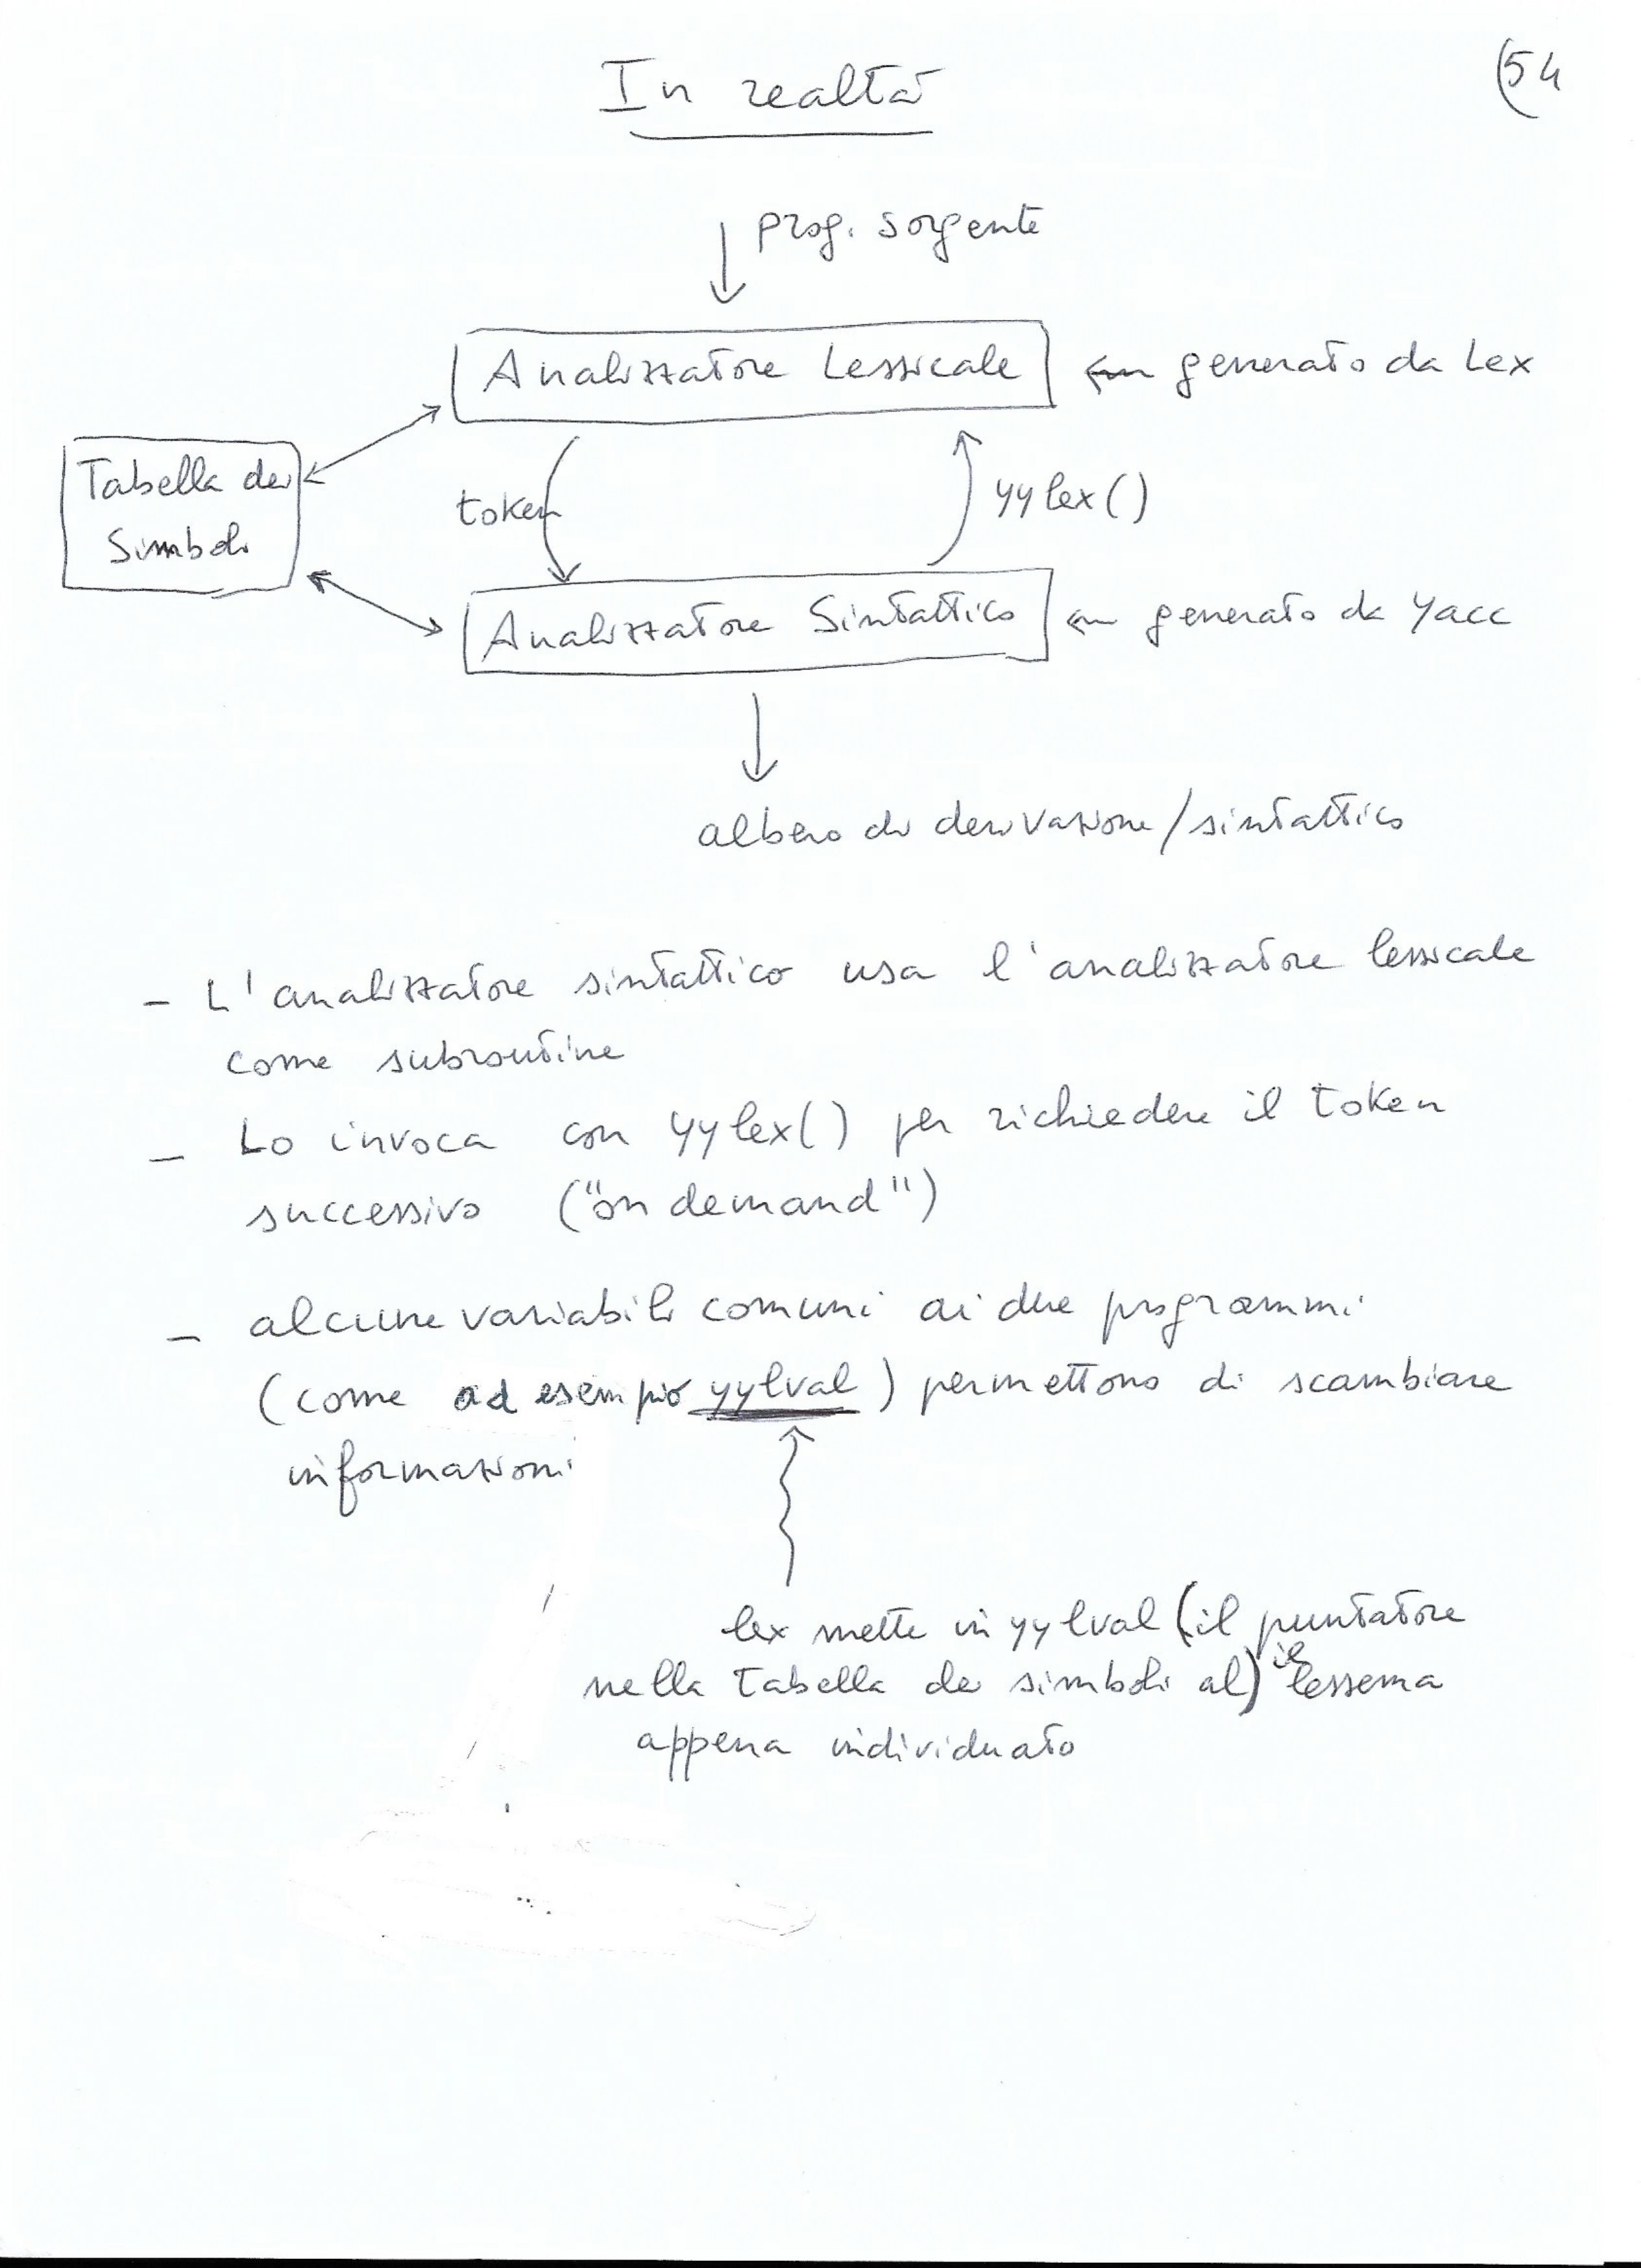 In realtà
(54
prog. sorgente
Analizzatore Lessicale
generato da Lex
Tabella dei
Simboli
token
yylex()
Analizzatore Sintattico
generato da Yacc
albero di derivazione/sintattico
- L'analizzatore sintattico usa l'analizzatore lessicale
come subroutine
- Lo invoca con yylex() per richiedere il token
successivo ("on demand")
- alcune variabili comuni ai due programmi
(come ad esempio yylval) permettono di scambiare
informazioni
lex mette in yylval (il puntatore
nella tabella dei simboli al) il lessema
appena individuato